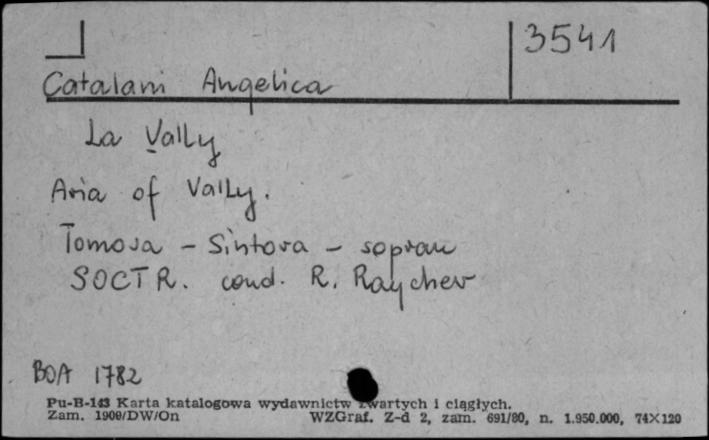 3541
Catalani Angelica
La Vally
Aria of Vally.
Tomova - Sintova - sopran
SOCTR. cond. R. Raychev
BOA 1782
Pu-B-143 Karta katalogowa wydawnictw zwartych i ciągłych.
Zam. 1909/DW/On WZGraf. Z-d 2, zam. 691/80, n. 1.950.000, 74X120